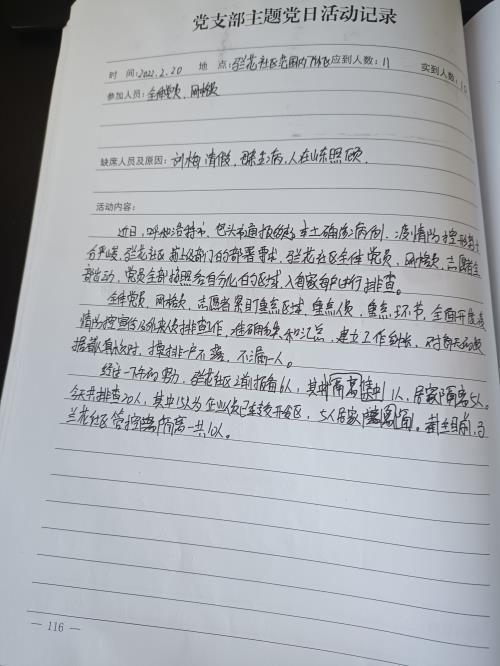 党支部主题党日活动记录
时 间：2022.2.20 地 点：兰花社区范围内 应到人数：11 实到人数：10
参加人员：全体党员、网格员
缺席人员及原因：刘梅请假，生病，人在山东照顾，
活动内容：
近日，呼和浩特市、包头市通报的本土确诊病例，疫情防控形势十
分严峻，兰花社区 部门的部署要求，兰花社区全体党员、网格员、志愿者全
部出动，党员全部按照各自分包的区域，入户进行排查。
全体党员、网格员、志愿者紧盯重点区域、重点人员、重点环节，全面开展疫
情防控宣传及外来人员排查工作，准确 和汇总，建立工作台账，对每天的数
据都 核对，摸排一户不落、不漏一人。
经过一下午的努力，兰花社区2前报备6人，其中隔离 1人，居家隔离5人。
今天共排查20人，其中15人为企业人员已 开发区，5人居家隔离。截至目前，
兰花社区管控隔离一共10人。
— 116 —